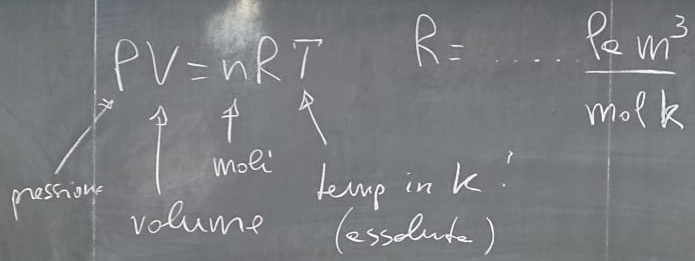 PV = nRT
R = ...... Pa m³ / mol k
pressione
volume
moli
temp in k !
(assoluta)